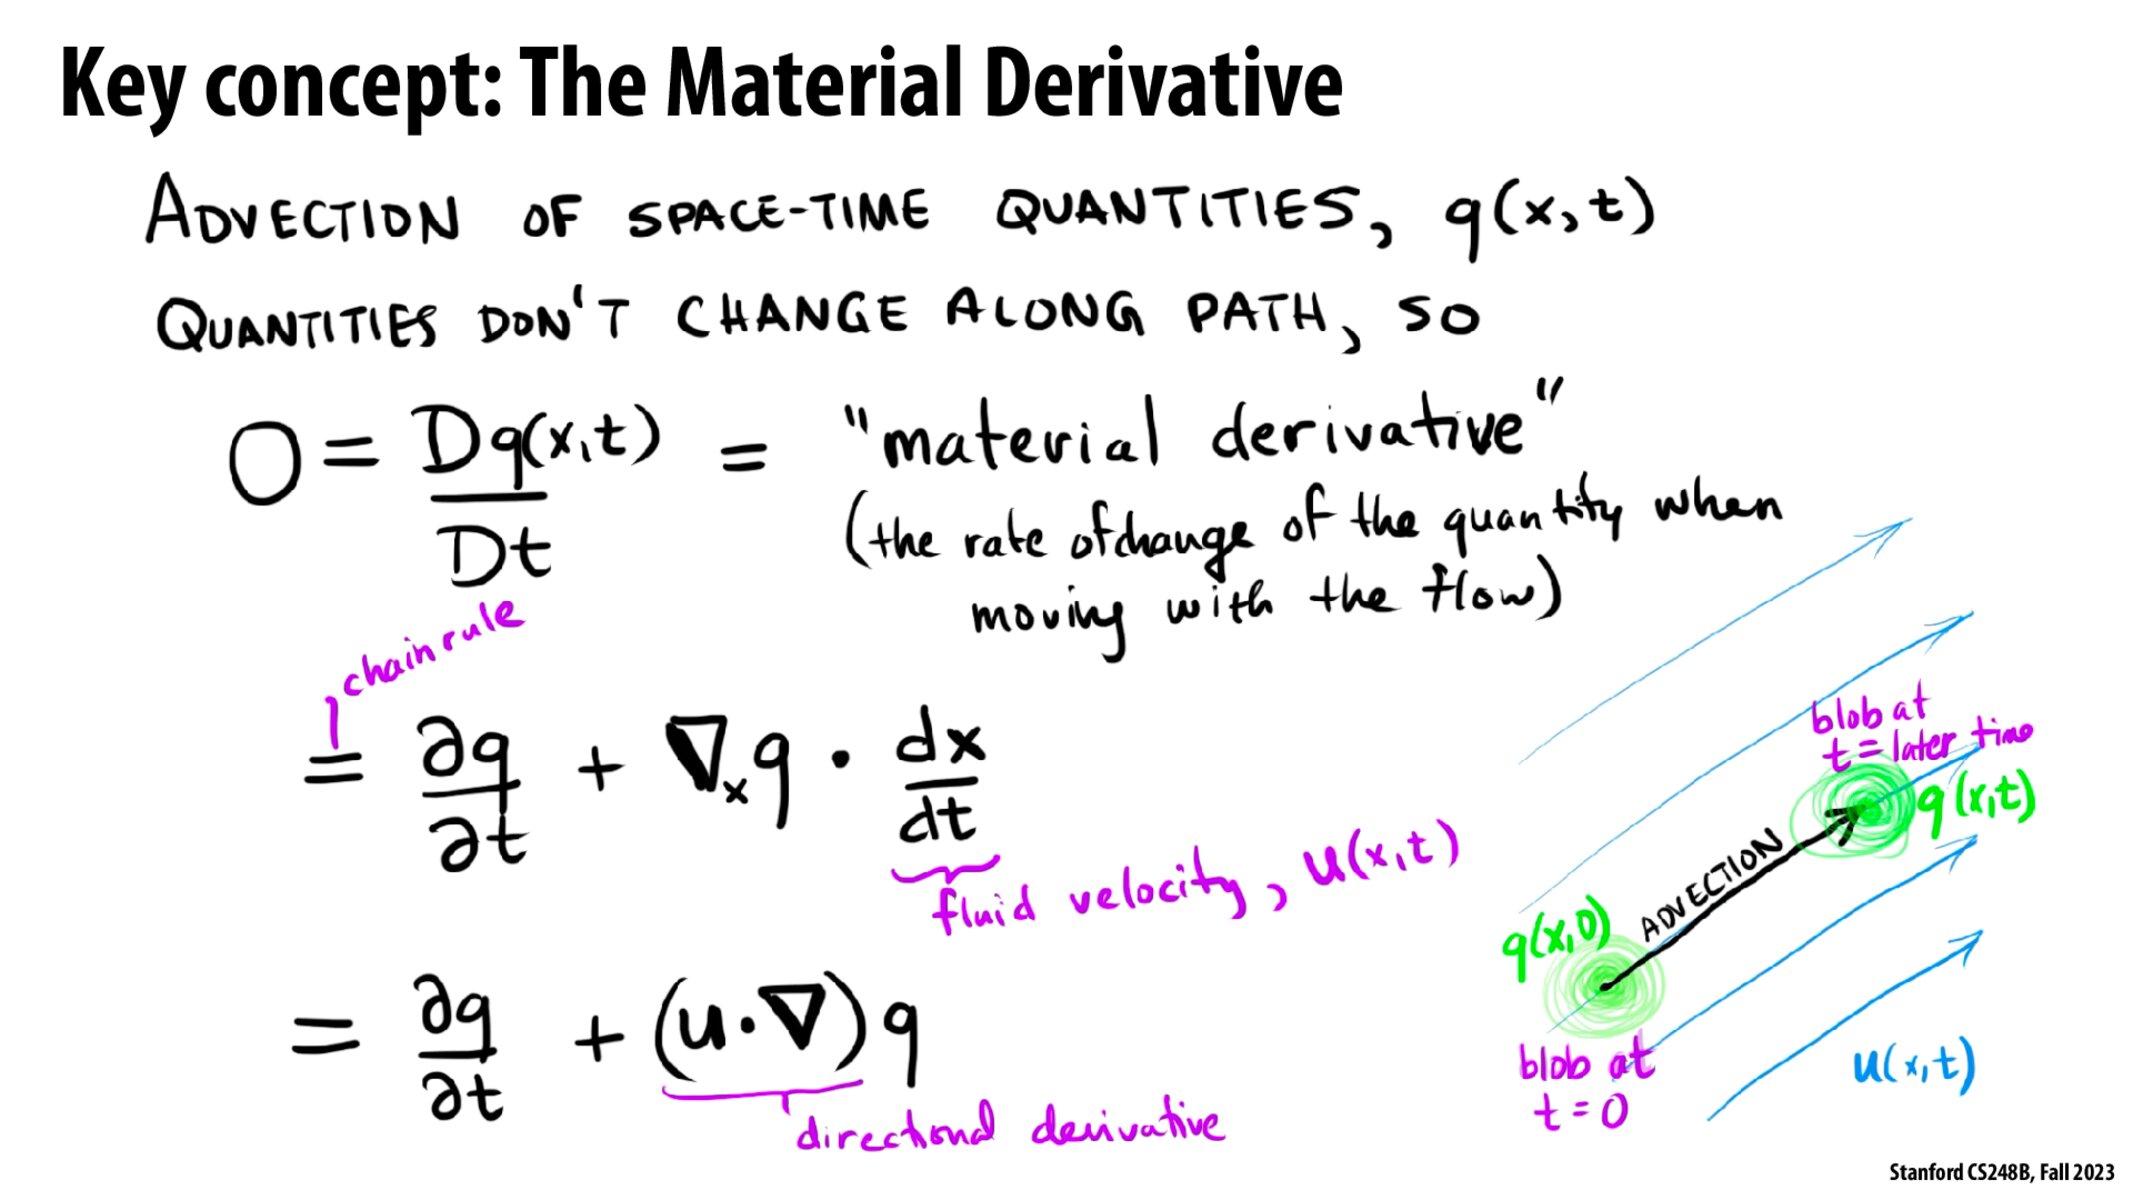 Key concept: The Material Derivative
ADVECTION OF SPACE-TIME QUANTITIES, q(x,t)
QUANTITIES DON'T CHANGE ALONG PATH, SO
0 = Dq(x,t)/Dt = "material derivative"
(the rate of change of the quantity when
moving with the flow)
chain rule
= ∂q/∂t + ∇ₓq · dx/dt
fluid velocity, u(x,t)
= ∂q/∂t + (u·∇)q
directional derivative
blob at
t = later time
q(x,t)
ADVECTION
q(x,0)
blob at
t = 0
u(x,t)
Stanford CS248B, Fall 2023